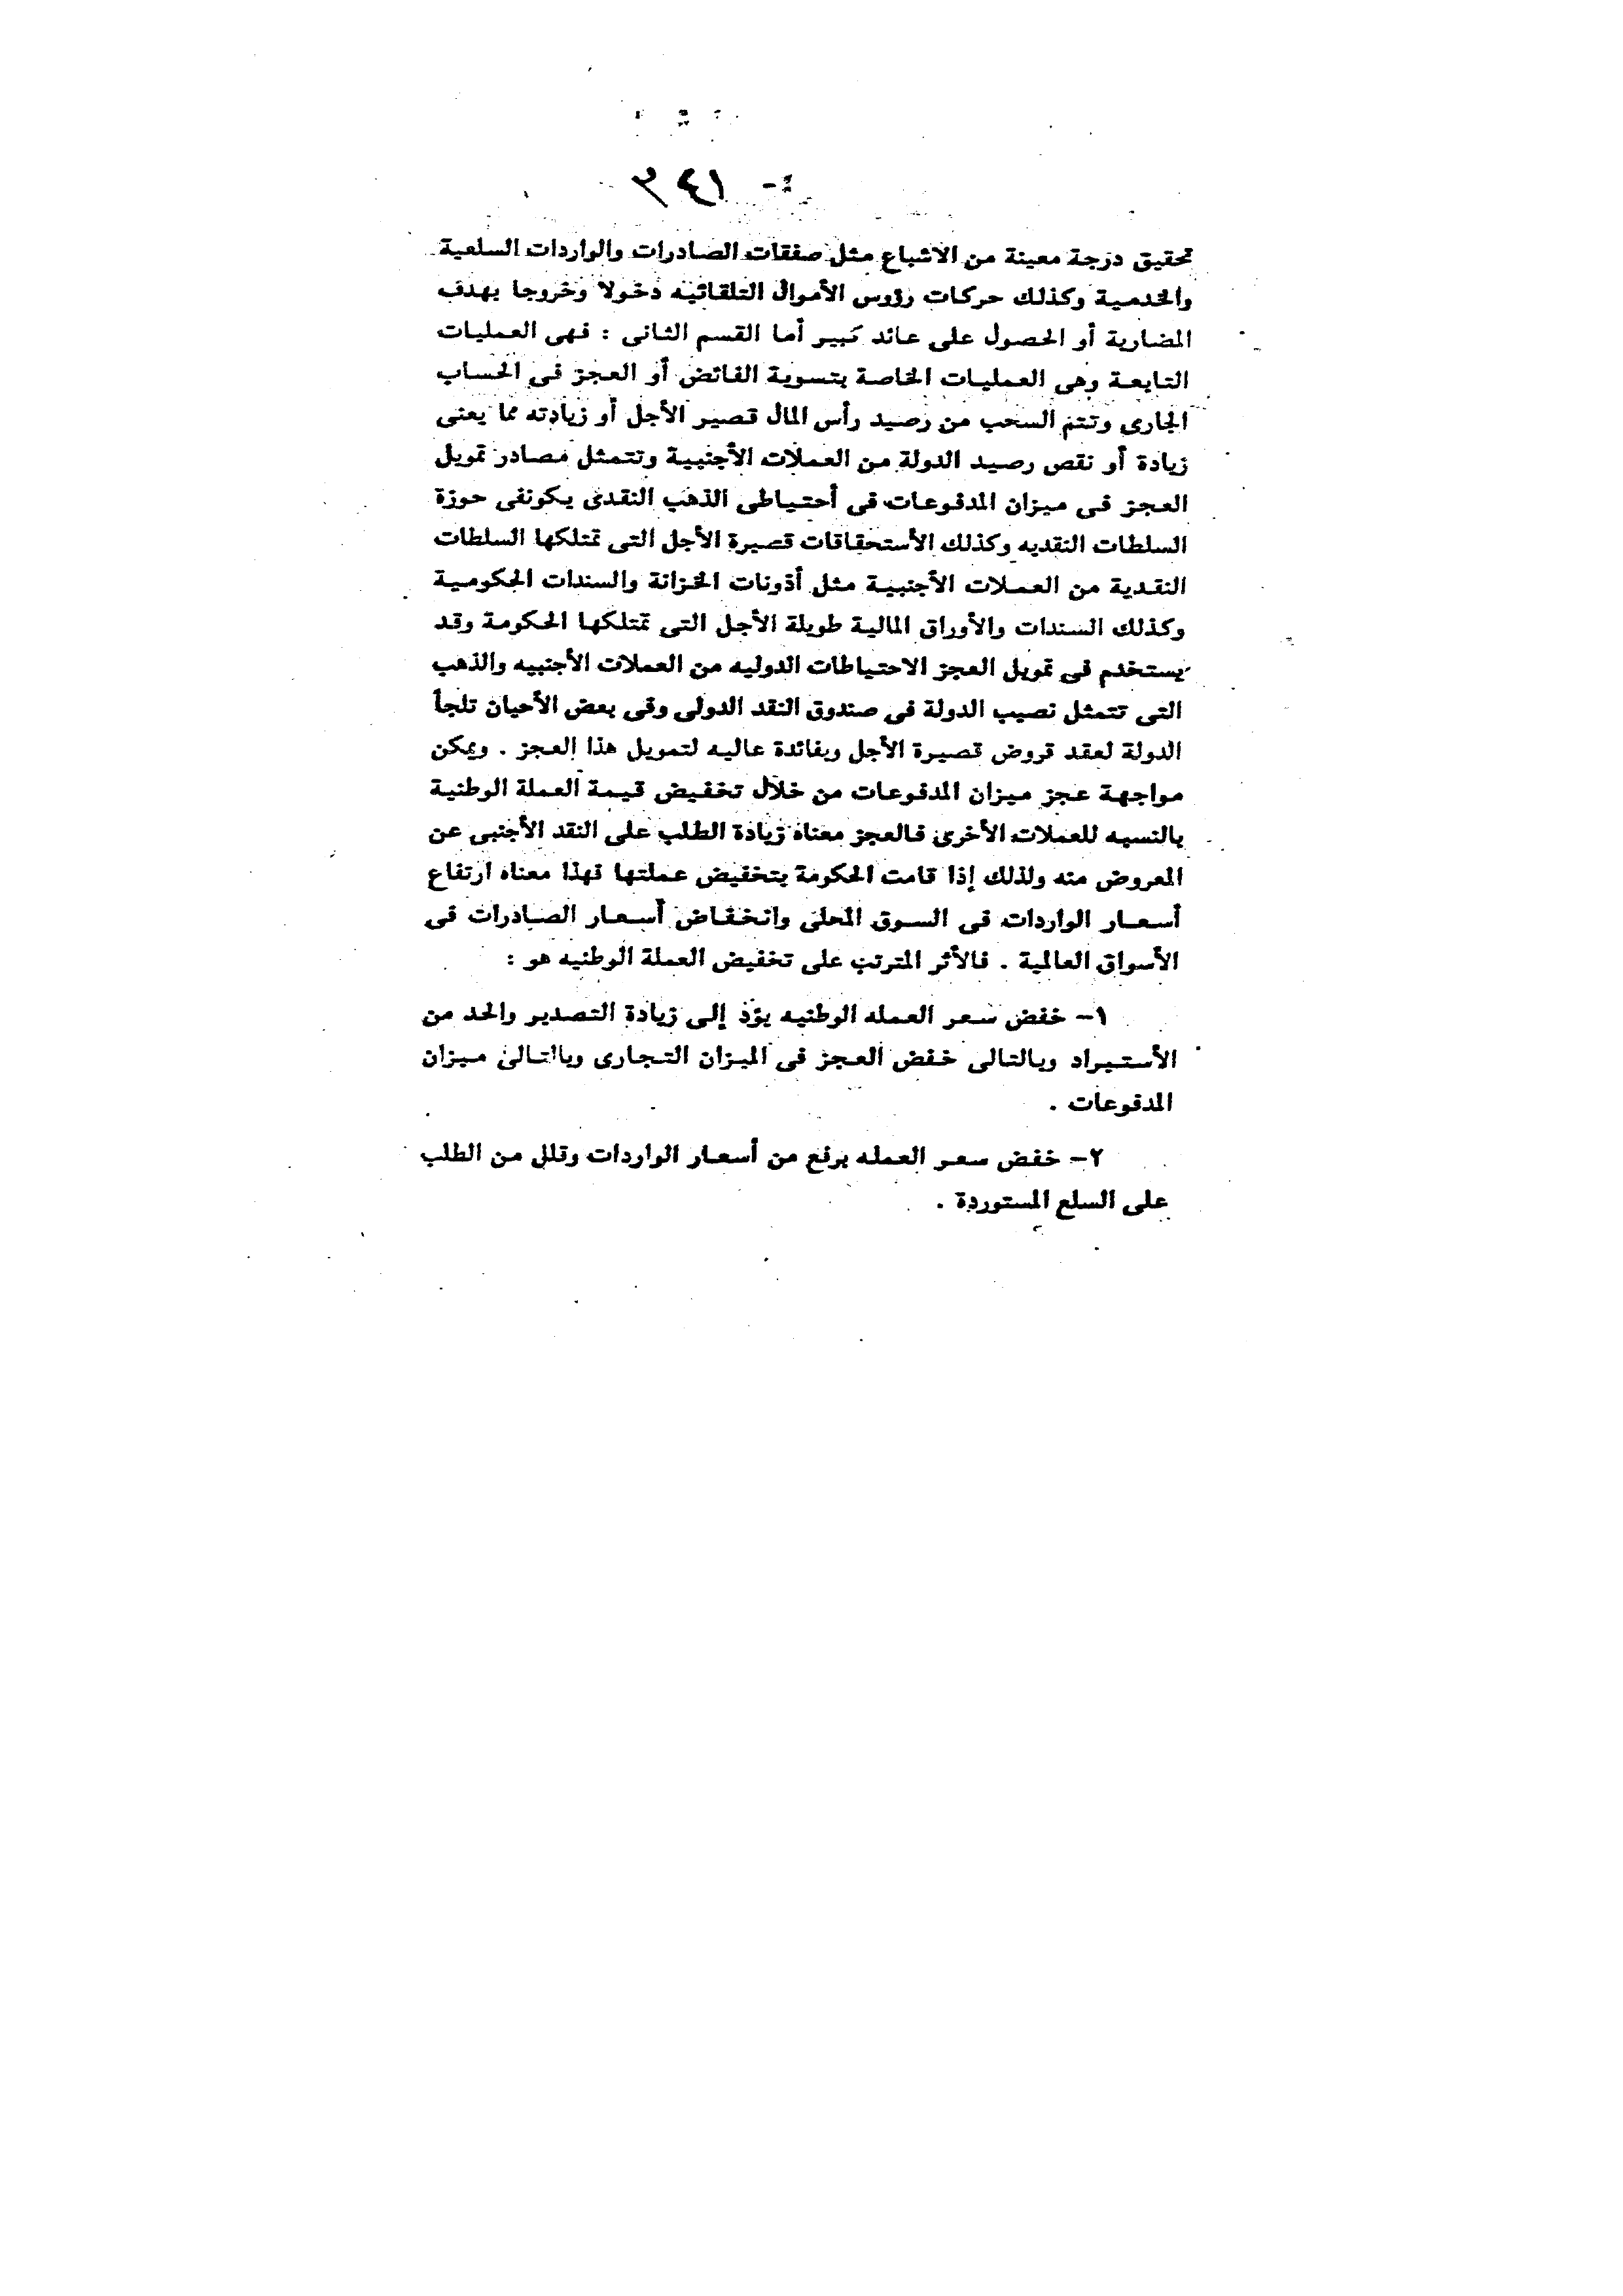 ٣٤١ -
تحقيق درجة معينة من الاشباع مثل صفقات الصادرات والواردات السلعية
والخدمية وكذلك حركات رؤوس الأموال التلقائيه دخولا وخروجا بهدف
المضاربة أو الحصول على عائد كبير أما القسم الثانى : فهى العمليات
التابعة وهى العمليات الخاصة بتسوية الفائض أو العجز فى الحساب
الجارى وتتم السحب من رصيد رأس المال قصير الأجل أو زيادته مما يعنى
زيادة أو نقص رصيد الدولة من العملات الأجنبية وتتمثل مصادر تمويل
العجز فى ميزان المدفوعات فى أحتياطى الذهب النقدى يكونفى حوزة
السلطات النقديه وكذلك الأستحقاقات قصيرة الأجل التى تمتلكها السلطات
النقدية من العملات الأجنبية مثل أذونات الخزانة والسندات الحكومية
وكذلك السندات والأوراق المالية طويلة الأجل التى تمتلكها الحكومة وقد
يستخدم فى تمويل العجز الاحتياطات الدوليه من العملات الأجنبيه والذهب
التى تتمثل نصيب الدولة فى صندوق النقد الدولى وفى بعض الأحيان تلجأ
الدولة لعقد قروض قصيرة الأجل وبفائدة عاليه لتمويل هذا العجز . ويمكن
مواجهة عجز ميزان المدفوعات من خلال تخفيض قيمة العملة الوطنية
بالنسبه للعملات الأخرى فالعجز معناه زيادة الطلب على النقد الأجنبى عن
المعروض منه ولذلك إذا قامت الحكومة بتخفيض عملتها فهذا معناه ارتفاع
أسعار الواردات فى السوق المحلى وانخفاض أسعار الصادرات فى
الأسواق العالمية . فالأثر المترتب على تخفيض العملة الوطنيه هو :
١- خفض سعر العمله الوطنيه يؤد إلى زيادة التصدير والحد من
الأستيراد وبالتالى خفض العجز فى الميزان التجارى وبالتالى ميزان
المدفوعات .
٢- خفض سعر العمله يرفع من أسعار الواردات وقلل من الطلب
على السلع المستوردة .